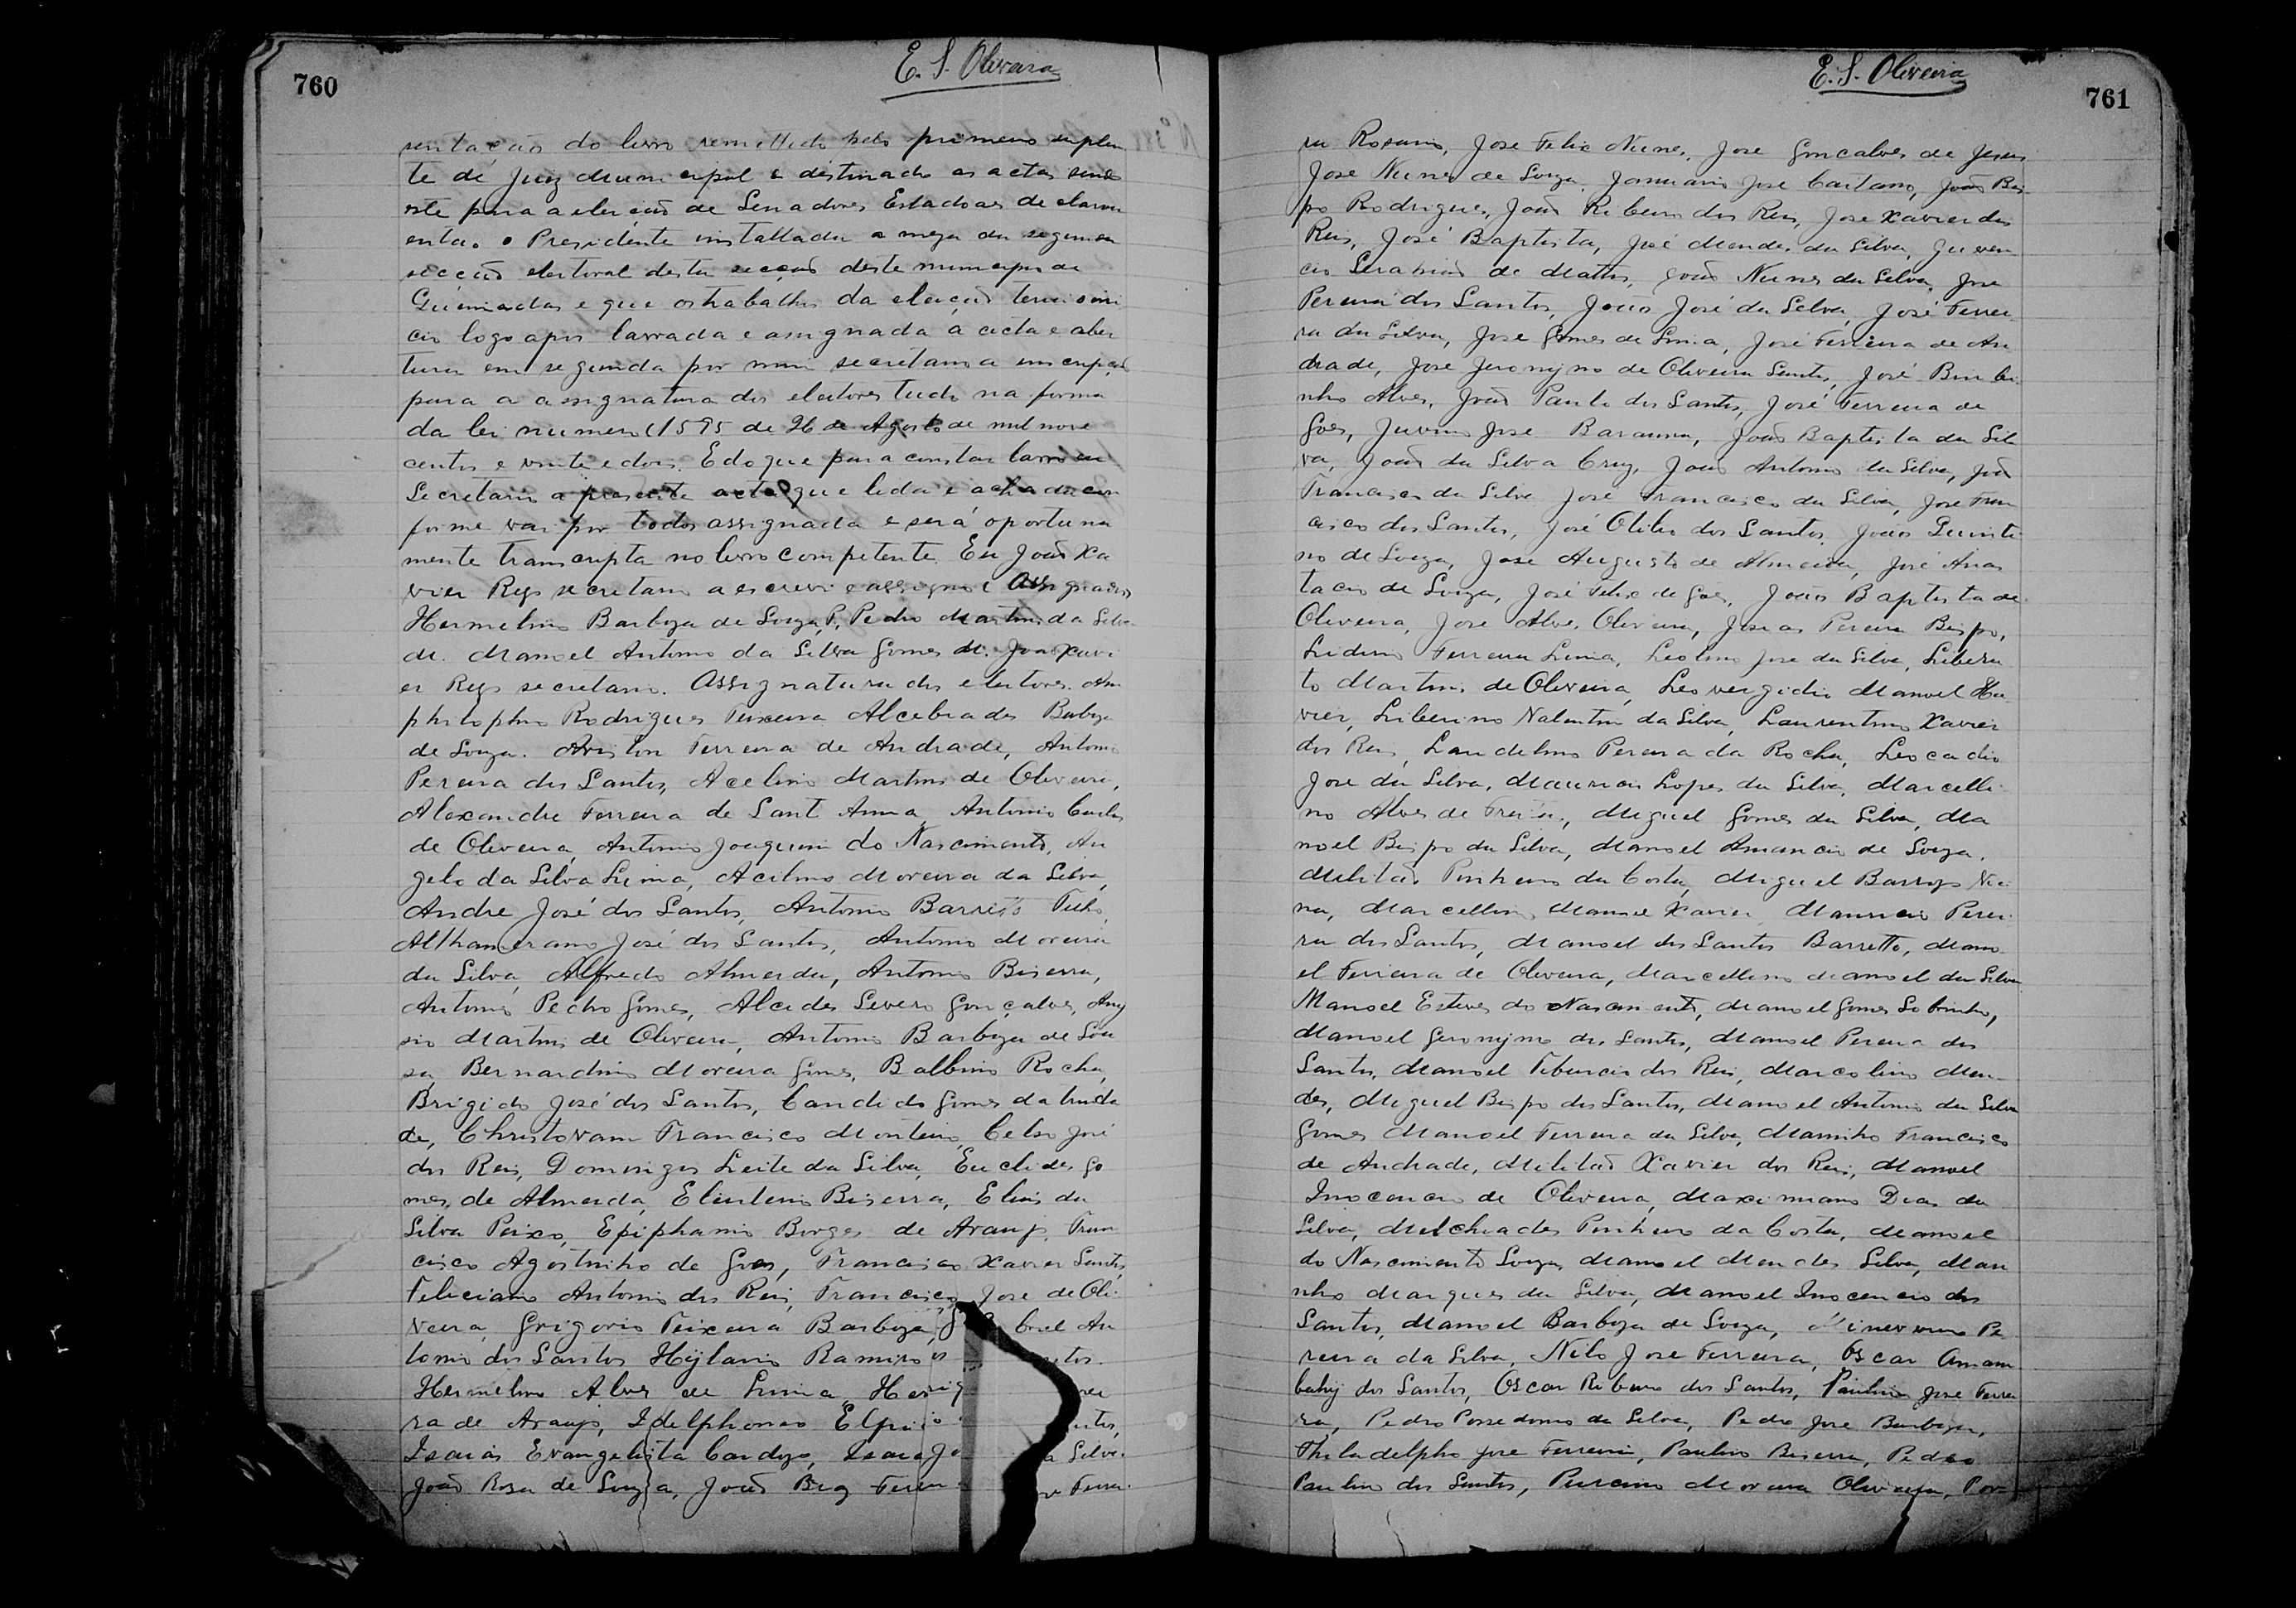 760
E. S. Oliveira
sentação do livro remettido pelo primeiro suplen
te de Juiz Municipal e destinado as actas
este para a eleição de Senadores Estadoaes de
o Presidente installada a meza da segunda
secção eleitoral desta secção deste municipio de
Queimadas e que os trabalhos da eleição terião ini
cio logo apos lavrada e assignada a acta e aber
tura em seguida por mim secretario a inscripção
para a assignatura dos eleitores tudo na forma
da lei numero 1595 de 26 de Agosto de mil nove
centos e vinte e dois. E do que para constar lavro eu
Secretario a presente acta que lida e achada con
forme vai por todos assignada e será oportuna
mente transcripta no livro competente. Eu João Xa
vier Reys secretario a escrevi e assigno. Assignados
Hermelino Barboza de Souza, P. Pedro Martins da Silva
M. Manoel Antonio da Silva Gomes M. João Xavi
er Reys secretario. Assignatura dos eleitores. Am
philophio Rodrigues Teixeira Alcebiades Barboza
de Souza. Ariston Ferreira de Andrade, Antonio
Pereira dos Santos, Acelino Martins de Oliveira,
Alexandre Ferreira de Sant Anna, Antonio Carlos
de Oliveira, Antonio Joaquim do Nascimento, An
gelo da Silva Lima, Acelino Moreira da Silva,
Andre José dos Santos, Antonio Barreto Filho,
Althamerano José dos Santos, Antonio Moreira
da Silva, Alfredo Almeida, Antonio Biserra,
Antonio Pedro Gomes, Alcides Severo Gonçalves, Any
sio Martins de Oliveira, Antonio Barboza de Sou
sa, Bernardino Moreira Gomes, Balbino Rocha,
Brigido José dos Santos, Candido Gomes da Trinda
de, Christovam Francisco Monteiro, Celso José
dos Reis, Domingos Leite da Silva, Euclides Go
mes de Almeida, Eleuterio Biserra, Elias da
Silva Peixo, Epiphanio Borges de Araujo, Fran
cisco Agostinho de Goes, Francisco Xavier Santos,
Feliciano Antonio dos Reis, Francisco Jose de Oli
veira, Grigorio Teixeira Barboza, briel An
tonio dos Santos Hylario Ramiro
Hermelino Alves de Lima,
ra de Araujo, Idelphonso
Isaias Evangelista Cardozo, a Silva.
João Rosa de Souza, João
761
E. S. Oliveira
ra Rosario, Jose Felix Nunes, Jose Goncalves de Jesus
Jose Nunes de Souza, Januario Jose Caitano, João Bis
po Rodrigues, João Ribeiro dos Reis, Jose Xavier dos
Reis, José Baptista, José Mendes da Silva, Juven
cio Serafim de Mattos, João Nunes da Silva, Jose
Pereira dos Santos, João José da Silva, José Ferrei
ra da Silva, Jose Gomes de Lima, José Ferreira de An
drade, Jose Jeronymo de Oliveira Santos, José
nho Alves, João Paulo dos Santos, José Ferreira de
Goes, Juvino Jose Barauna, João Baptista da Sil
va, João da Silva Cruz, João Antonio da Silva, João
Francisco da Silva José Francisco da Silva, Jose Fran
cisco dos Santos, José Otilio dos Santos, João Quinti
no de Souza, Jose Augusto de Almeida, José Anas
tacio de Souza, José Felix de Goes, João Baptista de
Oliveira, Jose Alves Oliveira, Josias Pereira Bispo,
Lidino Ferreira Lima, Leolino Jose da Silva, Libera
to Martins de Oliveira, Leovergidio Manoel Xa
vier, Liberino Nalentim da Silva, Laurentino Xavier
dos Reis, Laudelino Pereira da Rocha, Leocadio
Jose da Silva, Mauricio Lopes da Silva, Marcelli
no Alves de Freitas, Miguel Gomes da Silva, Ma
noel Bispo da Silva, Manoel Amancio de Souza,
Militão Pinheiro da Costa, Miguel Barros
Marcellino Manoel Xavier Mauricio Perei
ra dos Santos, Manoel dos Santos Barretto, Mano
el Ferreira de Oliveira, Marcellino Manoel da Silva
Manoel Esteves do Nascimento, Manoel Gomes Sobrinho,
Manoel Geronymo dos Santos, Manoel Pereira dos
Santos, Manoel Tiburcio dos Reis, Marcolino Men
des, Miguel Bispo dos Santos, Manoel Antonio da Silva
Gomes Manoel Ferreira da Silva, Marinho Francisco
de Andrade, Militão Xavier dos Reis, Manoel
Inocencio de Oliveira, Maximiano Dias da
Silva, Melchiades Pinheiro da Costa, Manoel
do Nascimento Souza, Manoel Mendes Silva, Mari
nho Marques da Silva, Manoel Inocencio dos
Santos, Manoel Barboza de Souza, Minervino Pe
reira da Silva, Nilo Jose Ferreira, Oscar Amam
bahy dos Santos, Oscar Ribeiro dos Santos, Paulino Jose Ferrei
ra, Pedro Possedonio da Silva, Pedro Jose Barboza,
Philadelpho Jose Ferreira, Paulino Biserra, Pedro
Paulino dos Santos, Purcino Moreira Oliveira, Por=